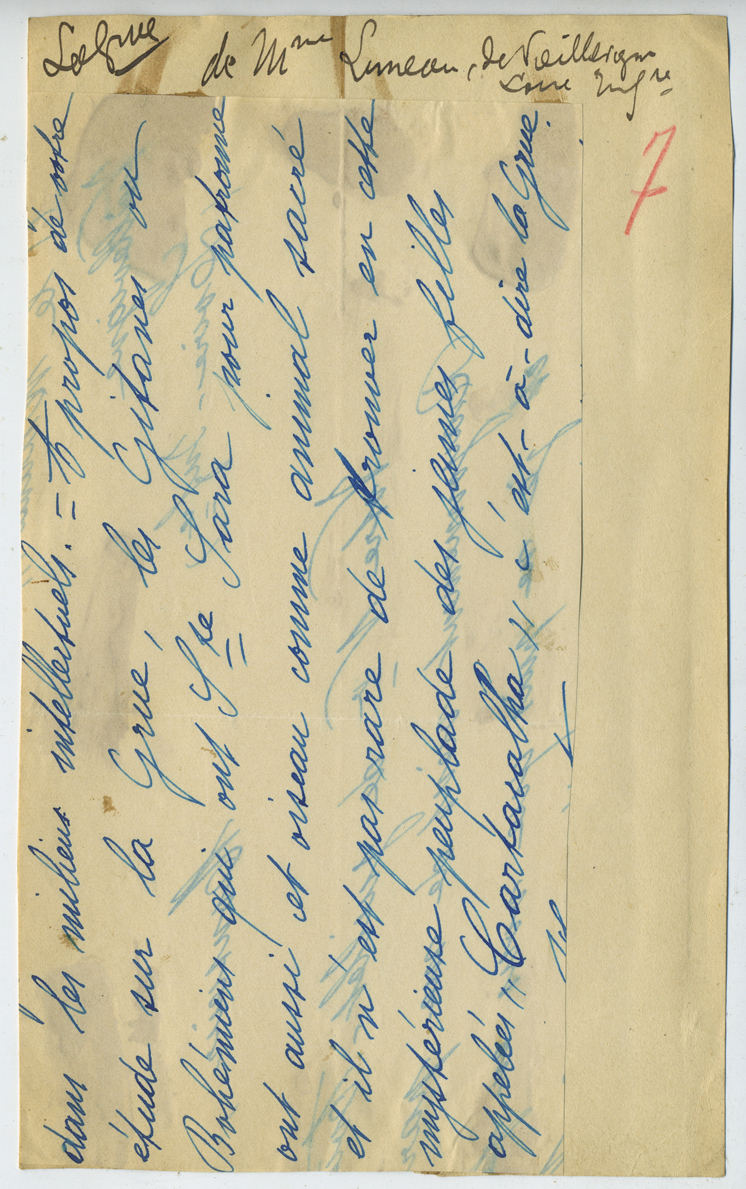 La Grue de Mme Luneau, de Vieillevigne
Loire Infre
7
dans les milieux intellectuels. = À propos de votre
étude sur la Grue, les Gitanes ou
Bohémiens qui ont Ste Sara pour patronne
ont aussi cet oiseau comme animal sacré
et il n'est pas rare de trouver en cette
mystérieuse peuplade des jeunes filles
appelées "Cartavalha" c'est-à-dire la Grue.